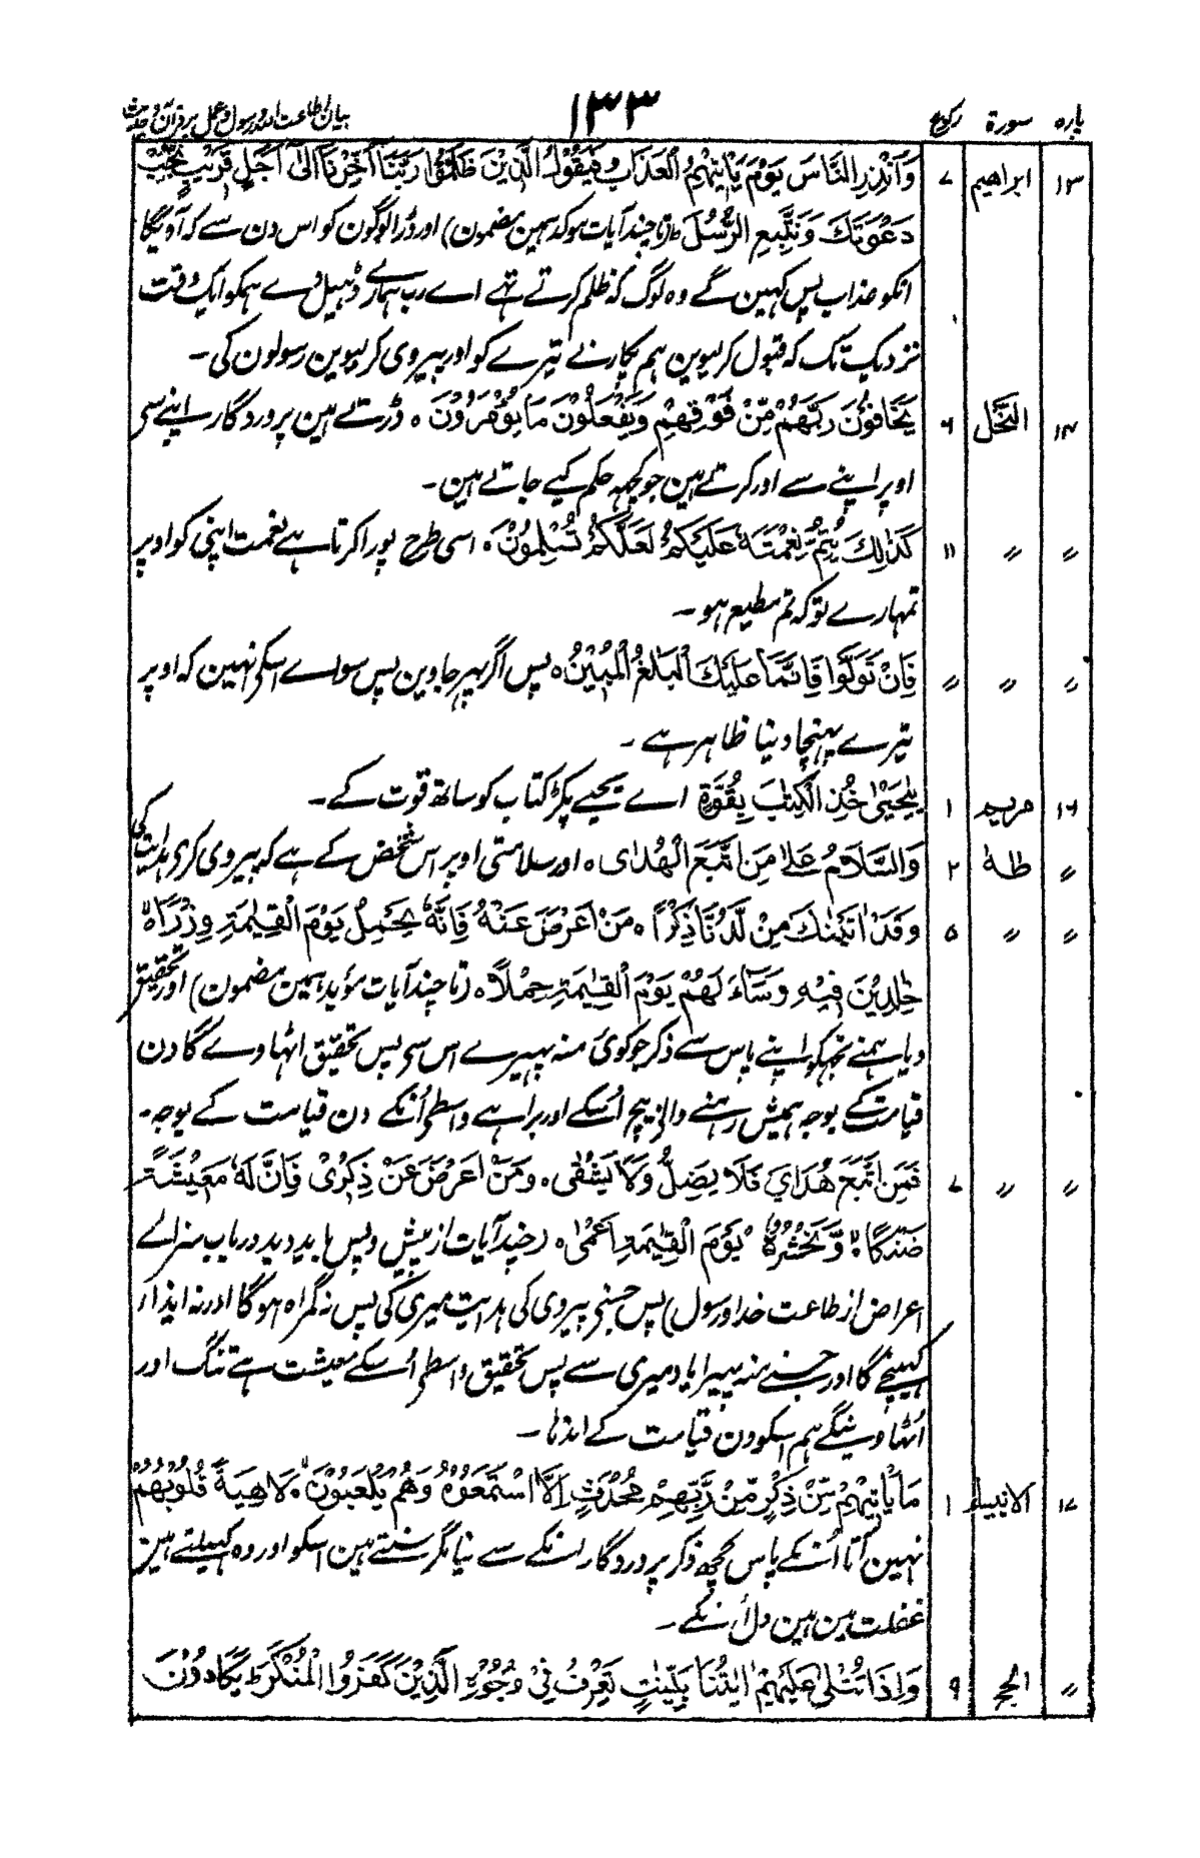 پارہ سورۃ رکوع ۱۳۳ بیان اطاعت اللہ و رسول و عمل بر قرآن و حدیث
۱۳ ابراھیم ۷ وَاَنْذِرِ النَّاسَ یَوْمَ یَاْتِیْهِمُ الْعَذَابُ فَیَقُوْلُ الَّذِیْنَ ظَلَمُوْا رَبَّنَا اَخِّرْنَا اِلٰی اَجَلٍ قَرِیْبٍ نُّجِبْ
دَعْوَتَكَ وَنَتَّبِعِ الرُّسُلَ ط (تا چند آیات موکد ہمین مضمون) اور ڈرا لوگون کو اس دن سے کہ آویگا
انکو عذاب پس کہین گے وہ لوگ کہ ظلم کرتے تھے اے رب ہمارے ڈھیل دے ہمکو ایک وقت
نزدیک تک کہ قبول کر لیوین ہم پکارنے تیرے کو اور پیروی کر لیوین رسولون کی۔
۱۴ النَّحْل ۶ یَخَافُوْنَ رَبَّهُمْ مِّنْ فَوْقِهِمْ وَیَفْعَلُوْنَ مَا یُؤْمَرُوْنَ ہ ڈرتے ہین پروردگار اپنے سی
اوپر اپنے سے اور کرتے ہین جو کچھہ حکم کیے جاتے ہین۔
〃 〃 ۱۱ كَذٰلِكَ یُتِمُّ نِعْمَتَهٗ عَلَیْكُمْ لَعَلَّكُمْ تُسْلِمُوْنَ ہ اسی طرح پورا کرتا ہے نعمت اپنی کو اوپر
تمہارے تو کہ تم مطیع ہو۔
〃 〃 〃 فَاِنْ تَوَلَّوْا فَاِنَّمَا عَلَیْكَ الْبَلٰغُ الْمُبِیْنُ ہ پس اگر پھر جاوین پس سواے اسکے نہین کہ اوپر
تیرے پہنچا دینا ظاہر ہے۔
۱۶ مریم ۱ یٰیَحْیٰی خُذِ الْكِتٰبَ بِقُوَّةٍ اے یحییٰ پکڑ کتاب کو ساتھ قوت کے۔
〃 طٰهٰ ۲ وَالسَّلَامُ عَلٰی مَنِ اتَّبَعَ الْهُدٰی ہ اور سلامتی اوپر اس شخص کے ہے کہ پیروی کری ہدایت کی
〃 〃 ۵ وَقَدْ اٰتَیْنٰكَ مِنْ لَّدُنَّا ذِكْرًا ہ مَنْ اَعْرَضَ عَنْهُ فَاِنَّهٗ یَحْمِلُ یَوْمَ الْقِیٰمَةِ وِزْرًا ہ
خٰلِدِیْنَ فِیْهِ وَسَآءَ لَهُمْ یَوْمَ الْقِیٰمَةِ حِمْلًا ہ (تا چند آیات مؤید ہمین مضمون) اور تحقیق
دیا ہمنے تجھکو اپنے پاس سے ذکر جو کوئی منہ پھیرے اس سی پس تحقیق اٹھاوے گا دن
قیامت کے بوجہ ہمیش رہنے والی بیچ اُسکے اور برا ہے واسطے اُنکے دن قیامت کے بوجہ۔
〃 〃 ۷ فَمَنِ اتَّبَعَ هُدَایَ فَلَا یَضِلُّ وَلَا یَشْقٰی ہ وَمَنْ اَعْرَضَ عَنْ ذِكْرِیْ فَاِنَّ لَهٗ مَعِیْشَةً
ضَنْكًا وَّ نَحْشُرُهٗ یَوْمَ الْقِیٰمَةِ اَعْمٰی ہ (چند آیات از پیش و پس باید دید درباب سزاے
اعراض از طاعت خدا و رسول) پس جسنے پیروی کی ہدایت میری کی پس نہ گمراہ ہوگا اور نہ ایذا
کھینچے گا اور جسنے منہ پھیرا یاد میری سے پس تحقیق واسطے اُسکے معیشت ہے تنگ اور
اُٹھاوینگے ہم اسکو دن قیامت کے اندھا۔
۱۷ الانبیاء ۱ مَا یَاْتِیْهِمْ مِّنْ ذِكْرٍ مِّنْ رَّبِّهِمْ مُّحْدَثٍ اِلَّا اسْتَمَعُوْهُ وَهُمْ یَلْعَبُوْنَ لَاهِیَةً قُلُوْبُهُمْ
نہین آتا اُنکے پاس کچھ ذکر پروردگار اُنکے سے نیا مگر سنتے ہین اسکو اور وہ کھیلتے ہین
غفلت مین ہین دل اُنکے۔
〃 الحج ۹ وَاِذَا تُتْلٰی عَلَیْهِمْ اٰیٰتُنَا بَیِّنٰتٍ تَعْرِفُ فِیْ وُجُوْهِ الَّذِیْنَ كَفَرُوا الْمُنْكَرَ ط یَكَادُوْنَ